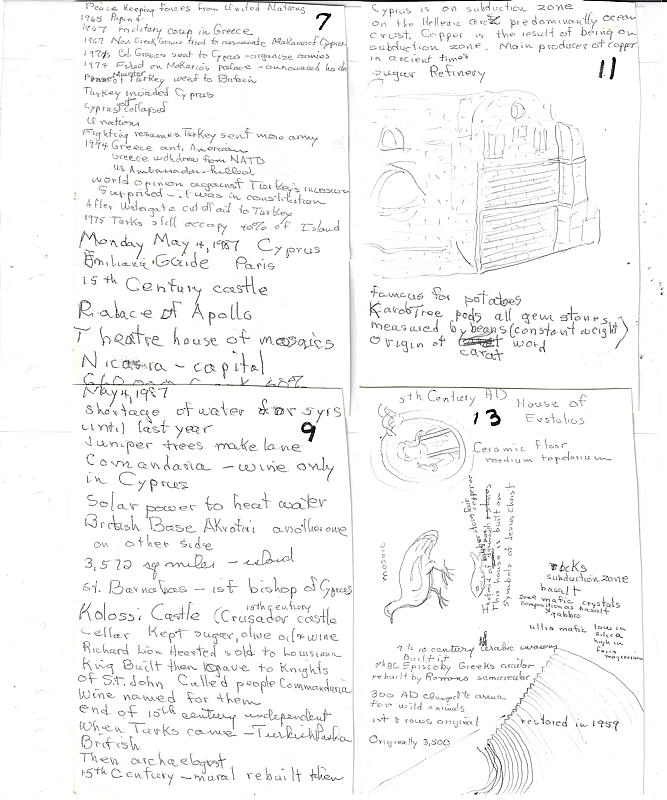 7
Peace Keeping forces from United Nations
1967 military coup in Greece
Turkey went to Britain
Turkey invaded Cyprus
Cyprus collapsed
U nations
Fighting resumes Turkey sent more army
1974 Greece anti American
Greece withdrew from NATO
US Ambassador killed
world opinion against Turkey's invasion
Surprised - it was in constitution
After Watergate cut off aid to Turkey
1975 Turks still occupy 40% of Island
Monday May 4, 1987 Cyprus
Emiliana Guide Paris
15th Century castle
Palace of Apollo
Theatre house of mosaics
Nicosia - capital
May 4, 1987
9
Shortage of water for 5yrs
until last year
Juniper trees make lane
Comandaria - wine only
in Cyprus
Solar power to heat water
British Base Akrotiri another one
on other side
3,572 sq miles - island
St. Barnabas - 1st bishop of Cyprus
Kolossi Castle (Crusader castle
15th century
Cellar Kept sugar, olive oil & wine
Richard Lion Hearted sold to Louisiana
King Built then gave to Knights
of St. John Called people Commandaria
Wine named for them
end of 15th century independent
When Turks came - Turkish Pasha
British
Then archaeologist
15th Century - mural rebuilt then
Cyprus is on subduction zone
on the Hellenic predominantly ocean
crust. Copper is the result of being on
subduction zone. Main producer of copper
in ancient times
11
Sugar Refinery
famous for potatoes
Karob Tree pods all gem stones
measured by beans (constant weight)
Origin of word
carat
5th Century AD
13
House of
Eustolios
Ceramic floor
medium tepdarium
mosaic
This house is built on
symbols of Jesus Christ
rocks
subduction zone
basalt
some mafic crystals
composition as basalt
gabbro
ultra mafic low in
silica
high in
magnesium
Built it
7th BC Episco by Greeks circular
rebuilt by Romans semicircular
300 AD changed to arena
for wild animals
1st 8 rows original
restored in 1959
Originally 3,500